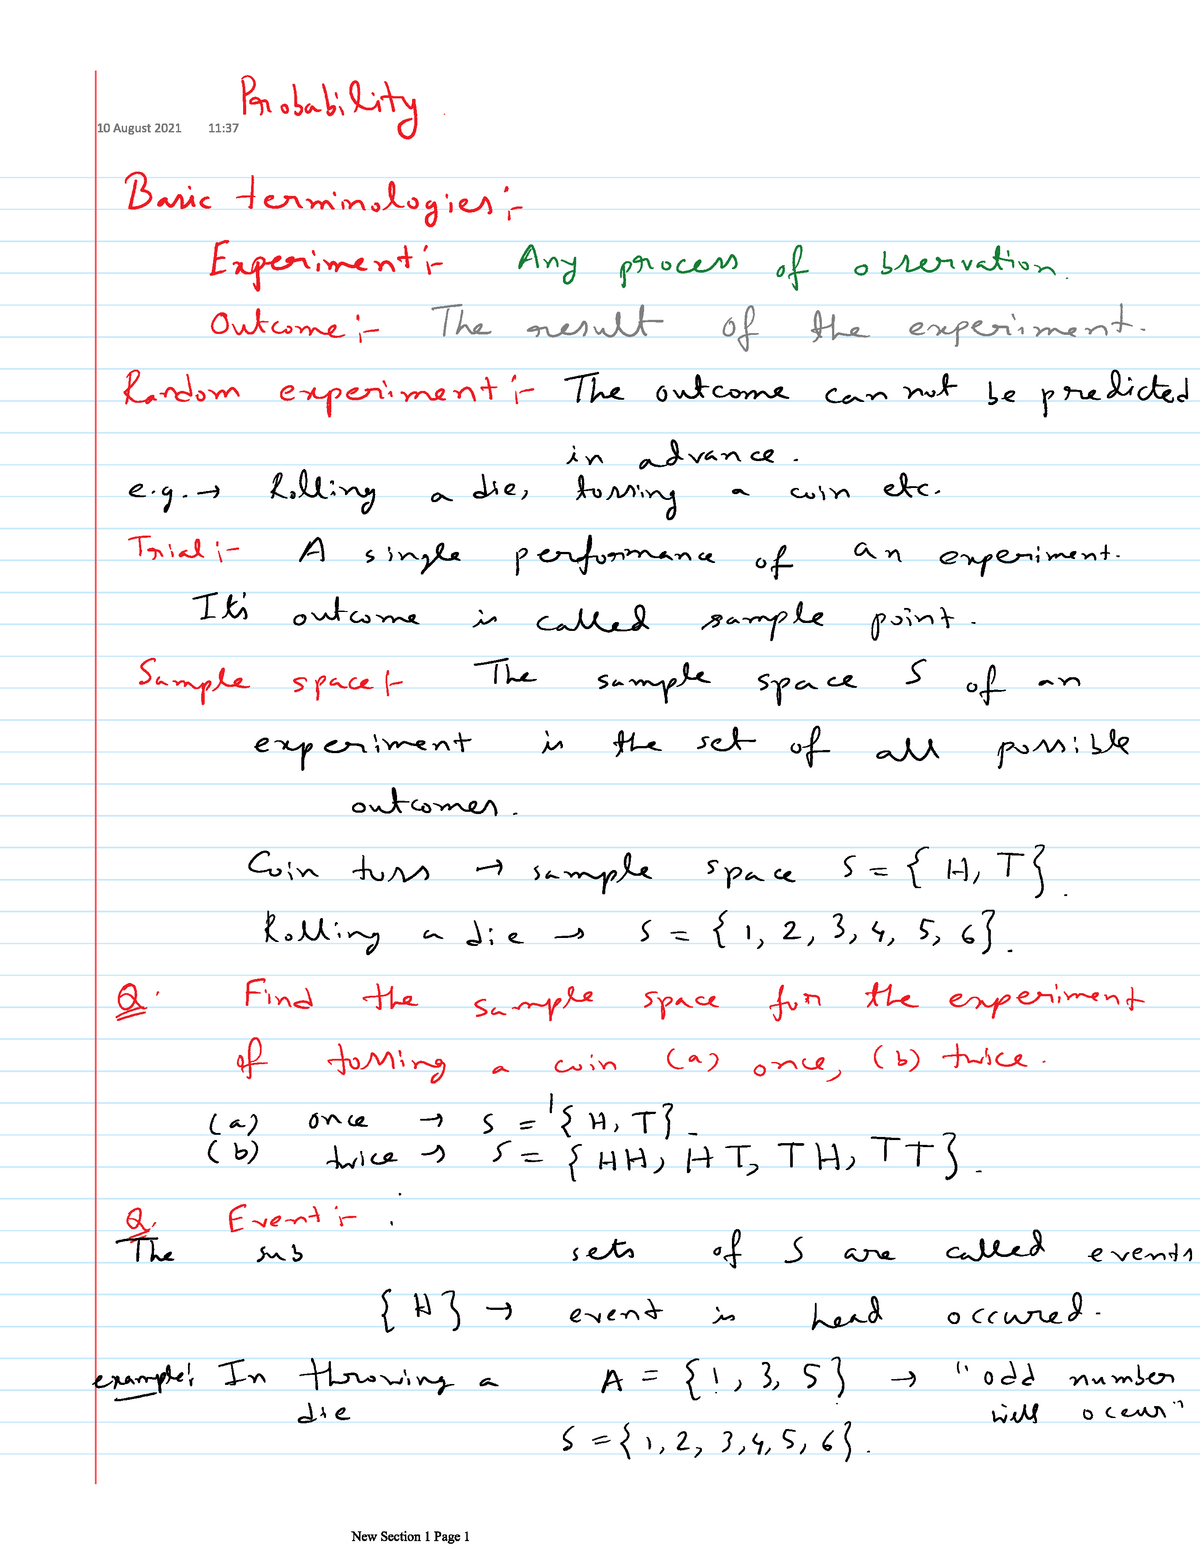 Probability
10 August 2021 11:37
Basic terminologies :-
Experiment :- Any process of observation.
Outcome :- The result of the experiment.
Random experiment :- The outcome can not be predicted
in advance.
e.g. → Rolling a die, tossing a coin etc.
Trial :- A single performance of an experiment.
It's outcome is called sample point.
Sample space :- The sample space S of an
experiment is the set of all possible
outcomes.
Coin toss → sample space S = { H, T }.
Rolling a die → S = { 1, 2, 3, 4, 5, 6 }.
Q. Find the sample space for the experiment
of tossing a coin (a) once, (b) twice.
(a) once → S = { H, T }.
(b) twice → S = { HH, HT, TH, TT }.
Q. Event :-
The sub sets of S are called events
{ H } → event is head occured.
example: In throwing a A = { 1, 3, 5 } → "odd number
die will occur"
S = { 1, 2, 3, 4, 5, 6 }.
New Section 1 Page 1